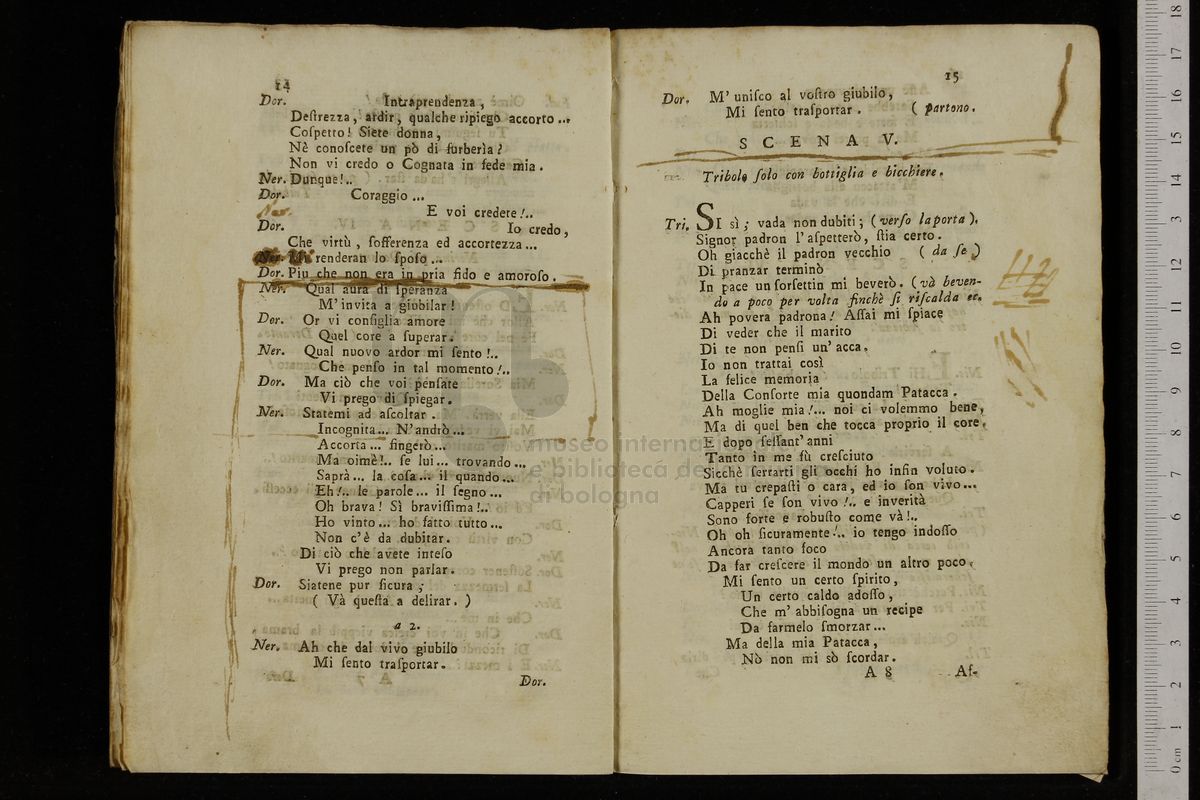 14
Dor. Intraprendenza,
Deſtrezza, ardir, qualche ripiego accorto ...
Coſpetto! Siete donna,
Nè conoſcete un pò di furberìa?
Non vi credo o Cognata in fede mia.
Ner. Dunque!..
Dor. Coraggio ...
Ner. E voi credete!..
Dor. Io credo,
Che virtù, ſofferenza ed accortezza ...
Ner. Mi renderan lo ſpoſo ...
Dor. Piu che non era in pria fido e amoroſo.
Ner. Qual aura di ſperanza
M'invita a giubilar!
Dor. Or vi conſiglia amore
Quel core a ſuperar.
Ner. Qual nuovo ardor mi ſento!..
Che penſo in tal momento!..
Dor. Ma ciò che voi penſate
Vi prego di ſpiegar.
Ner. Statemi ad aſcoltar.
Incognita ... N'andrò ...
Accorta ... fingerò ...
Ma oimè!.. ſe lui ... trovando ...
Saprà ... la coſa ... il quando ...
Eh!.. le parole ... il ſegno ...
Oh brava! Sì braviſſima!..
Ho vinto ... ho fatto tutto ...
Non c'è da dubitar.
Di ciò che avete inteſo
Vi prego non parlar.
Dor. Siatene pur ſicura;
( Và queſta a delirar. )
a 2.
Ner. Ah che dal vivo giubilo
Mi ſento traſportar.
Dor.
15
Dor. M'uniſco al voſtro giubilo,
Mi ſento traſportar. ( partono.
SCENA V.
Tribolo ſolo con bottiglia e bicchiere.
Tri. SI sì; vada non dubiti; (verſo la porta).
Signor padron l'aſpetterò, ſtia certo.
Oh giacchè il padron vecchio ( da ſe )
Di pranzar terminò
In pace un ſorſettin mi beverò. (và beven-
do a poco per volta finchè ſi riſcalda ec.
Ah povera padrona! Aſſai mi ſpiace
Di veder che il marito
Di te non penſi un'acca.
Io non trattai così
La felice memoria
Della Conſorte mia quondam Patacca.
Ah moglie mia!... noi ci volemmo bene,
Ma di quel ben che tocca proprio il core.
E dopo ſeſſant'anni
Tanto in me fù creſciuto
Sicchè ſerrarti gli occhi ho infin voluto.
Ma tu crepaſti o cara, ed io ſon vivo ...
Capperi ſe ſon vivo!.. e inverità
Sono forte e robuſto come và!..
Oh oh ſicuramente!.. io tengo indoſſo
Ancora tanto foco
Da far creſcere il mondo un altro poco.
Mi ſento un certo ſpirito,
Un certo caldo adoſſo,
Che m'abbiſogna un recipe
Da farmelo ſmorzar ...
Ma della mia Patacca,
Nò non mi sò ſcordar.
A 8 Aſ-
museo internaz
e biblioteca de
di bologna
0 cm 1 2 3 4 5 6 7 8 9 10 11 12 13 14 15 16 17 18